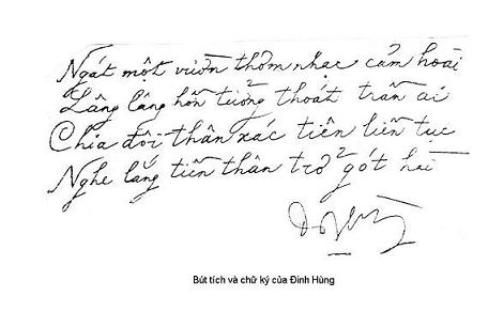 Ngát một vườn thơm nhạc cảm hoài
Lâng lâng hồn tưởng thoát trần ai
Chia đôi thân xác tiên liền tục
Nghe lắng tiền thân trở gót hài
Bút tích và chữ ký của Đinh Hùng